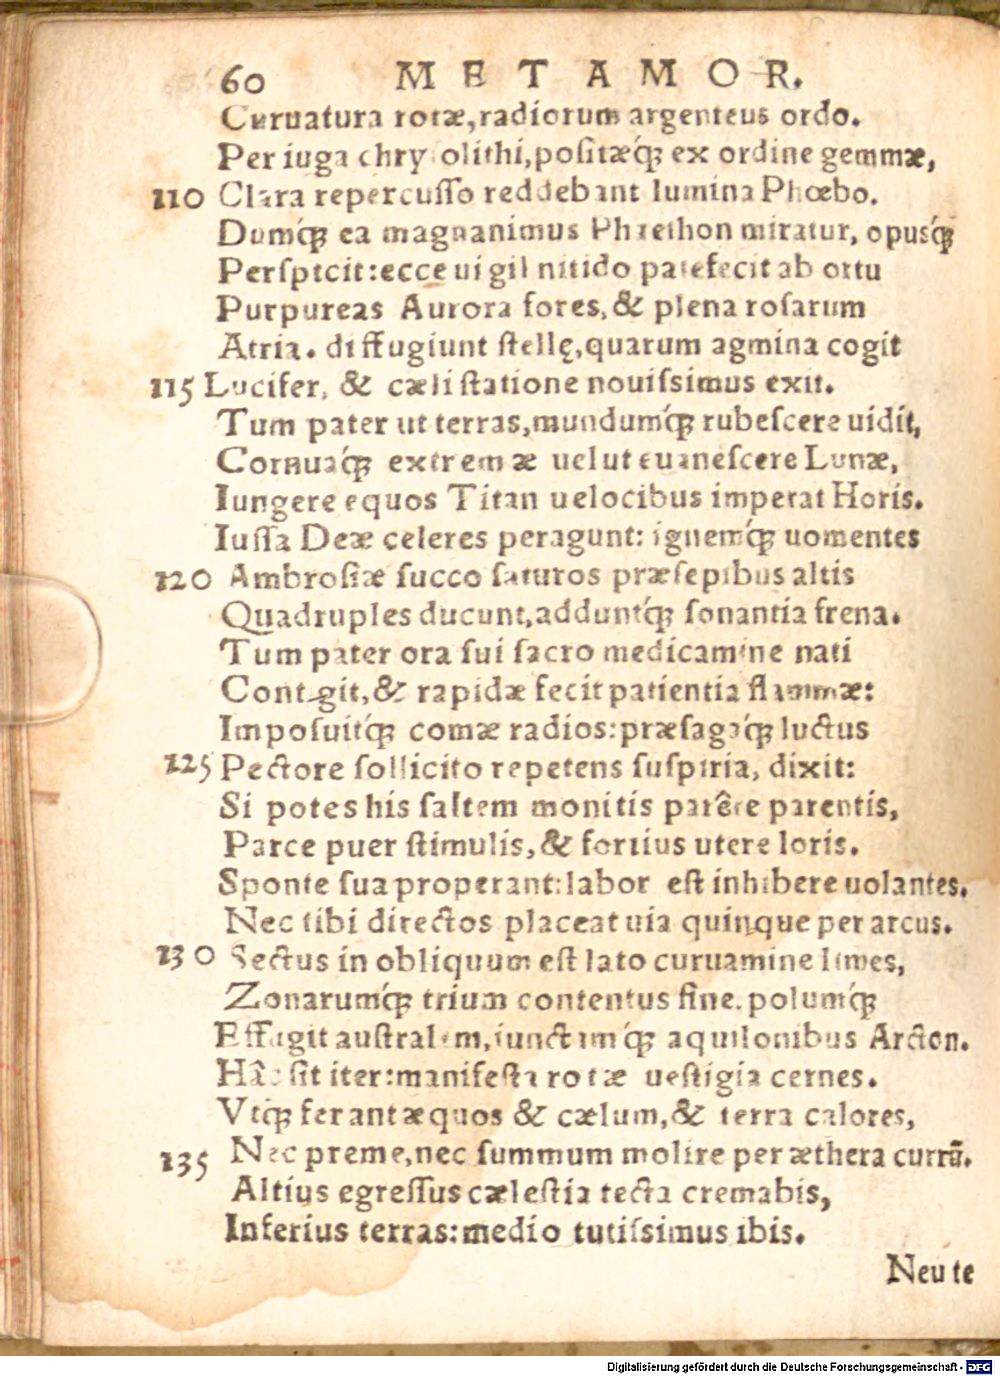 60 METAMOR.
Curuatura rotæ,radiorum argenteus ordo.
Per iuga chrysolithi,positæq́; ex ordine gemmæ,
110 Clara repercusso reddebant lumina Phœbo.
Dumq́; ea magnanimus Phaethon miratur, opusq́;
Perspicit:ecce uigil nitido patefecit ab ortu
Purpureas Aurora fores,& plena rosarum
Atria. diffugiunt stellę,quarum agmina cogit
115 Lucifer, & cæli statione nouissimus exit.
Tum pater ut terras,mundumq́; rubescere uidit,
Cornuaq́; extremæ uelut euanescere Lunæ,
Iungere equos Titan uelocibus imperat Horis.
Iussa Deæ celeres peragunt: ignemq́; uomentes
120 Ambrosiæ succo saturos præsepibus altis
Quadruples ducunt,adduntq́; sonantia frena.
Tum pater ora sui sacro medicamine nati
Contigit,& rapidæ fecit patientia flammæ:
Imposuitq́; comæ radios:præsagaq́; luctus
125 Pectore sollicito repetens suspiria, dixit:
Si potes his saltem monitis parêre parentis,
Parce puer stimulis,& fortius utere loris.
Sponte sua properant:labor est inhibere uolantes.
Nec tibi directos placeat uia quinque per arcus.
130 Sectus in obliquum est lato curuamine limes,
Zonarumq́; trium contentus fine. polumq́;
Effugit australem,iunctamq́; aquilonibus Arcton.
Hâc sit iter:manifesta rotæ uestigia cernes.
Vtq́; ferant æquos & cælum,& terra calores,
135 Nec preme,nec summum molire per æthera currũ.
Altius egressus cælestia tecta cremabis,
Inferius terras:medio tutissimus ibis.
Neu te
Digitalisierung gefördert durch die Deutsche Forschungsgemeinschaft - DFG